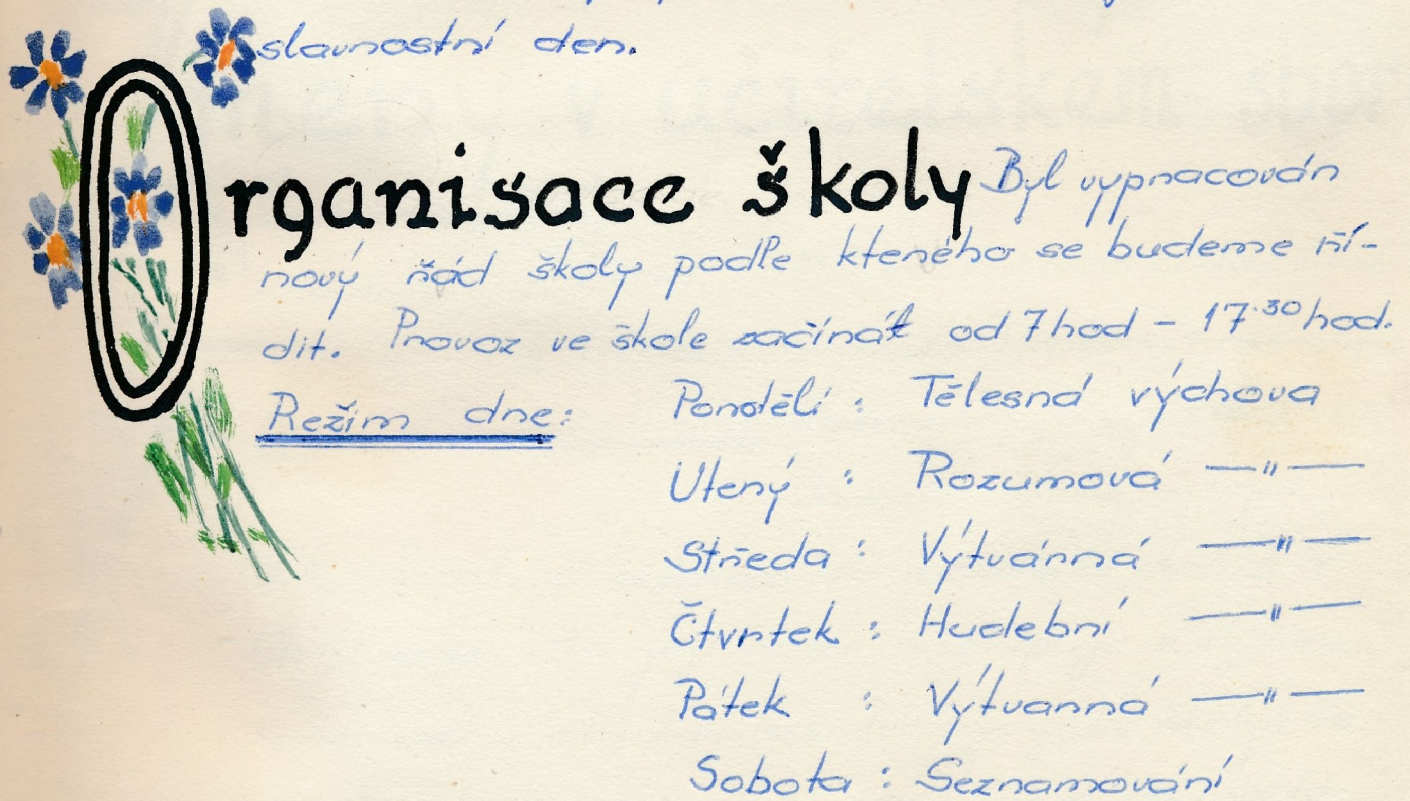 slavnostní den.
Organisace školy Byl vypracován
nový řád školy podle kterého se budeme ří-
dit. Provoz ve škole začínát od 7 hod - 17.30 hod.
Režim dne: Pondělí : Tělesná výchova
Úterý : Rozumová —〃—
Středa : Výtvárná —〃—
Čtvrtek : Hudební —〃—
Pátek : Výtvarná —〃—
Sobota : Seznamování